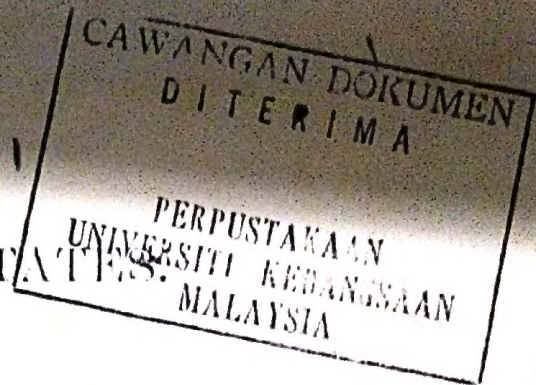 CAWANGAN DOKUMEN
DITERIMA
PERPUSTAKAAN
UNIVERSITI KEBANGSAAN
MALAYSIA
TATES.